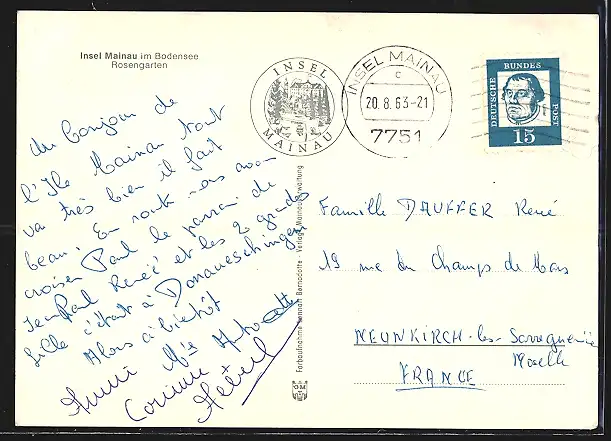 Insel Mainau im Bodensee
Rosengarten
INSEL
MAINAU
INSEL MAINAU
c
20.8.63-21
7751
DEUTSCHE BUNDESPOST
15
Un bonjour de
l'Ile Mainau tout
va très bien il fait
beau. En route nous avons
croiser Paul le parrain de
Jean Paul Renée et les 2 grandes
fille c'était à Donaueschingen
Alors à bientôt
Corinne
Farbaufnahme Lennart Bernadotte - Verlag Mainauverwaltung
Famille DAUFFER René
19 rue du Champs de Mars
NEUNKIRCH-les-Sarreguemine
Moselle
FRANCE